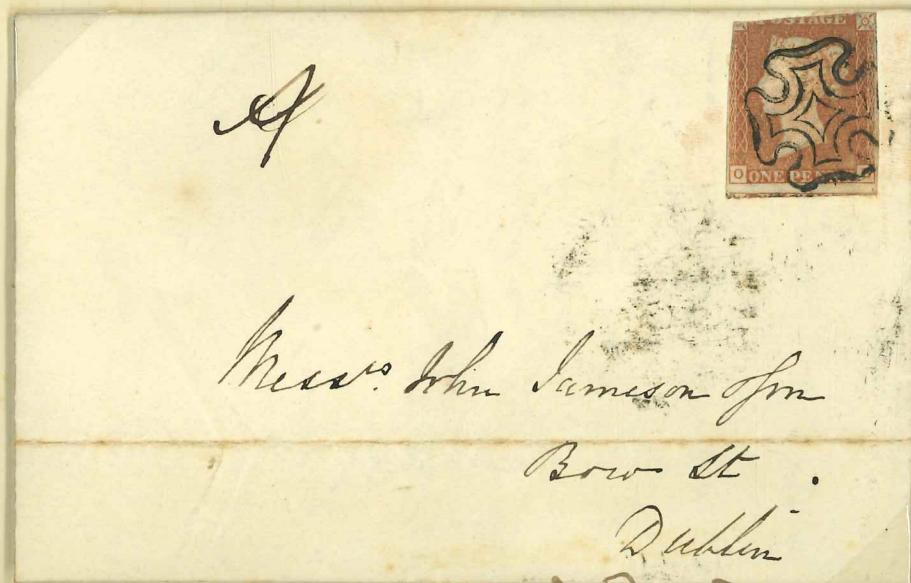 POSTAGE
O ONE PEN
Messrs. John Jameson & Son
Bow St.
Dublin